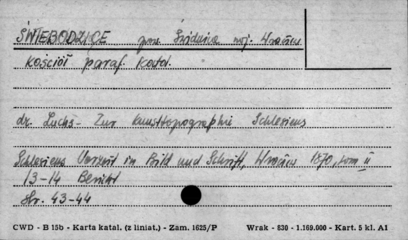 ŚWIEBODZICE gm. Świdnica woj. Wrocław
Kościół paraf. Katol.
dr. Luchs - Zur Kunsttopographie Schlesiens
Schlesiens Vorzeit in Bild und Schrift, Wrocław 1870, tom II
13-14 Bericht
Str. 43-44
CWD - B 15b - Karta katal. (z liniat.) - Zam. 1625/P Wrak - 830 - 1.169.000 - Kart. 5 kl. AI